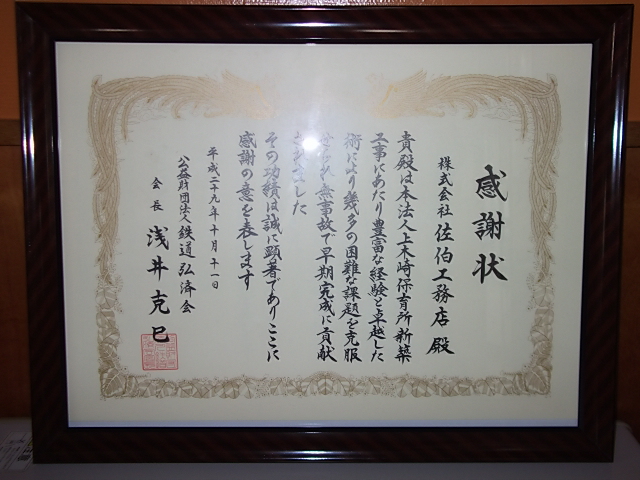 感謝状
株式会社 佐伯工務店 殿
貴殿は本法人上木崎保育所新築
工事にあたり豊富な経験と卓越した
術により幾多の困難な課題を克服
無事故で早期完成に貢献
した
その功績は誠に顕著でありここに
感謝の意を表します
平成二十九年十月十一日
公益財団法人鉄道弘済会
会長 浅井克巳